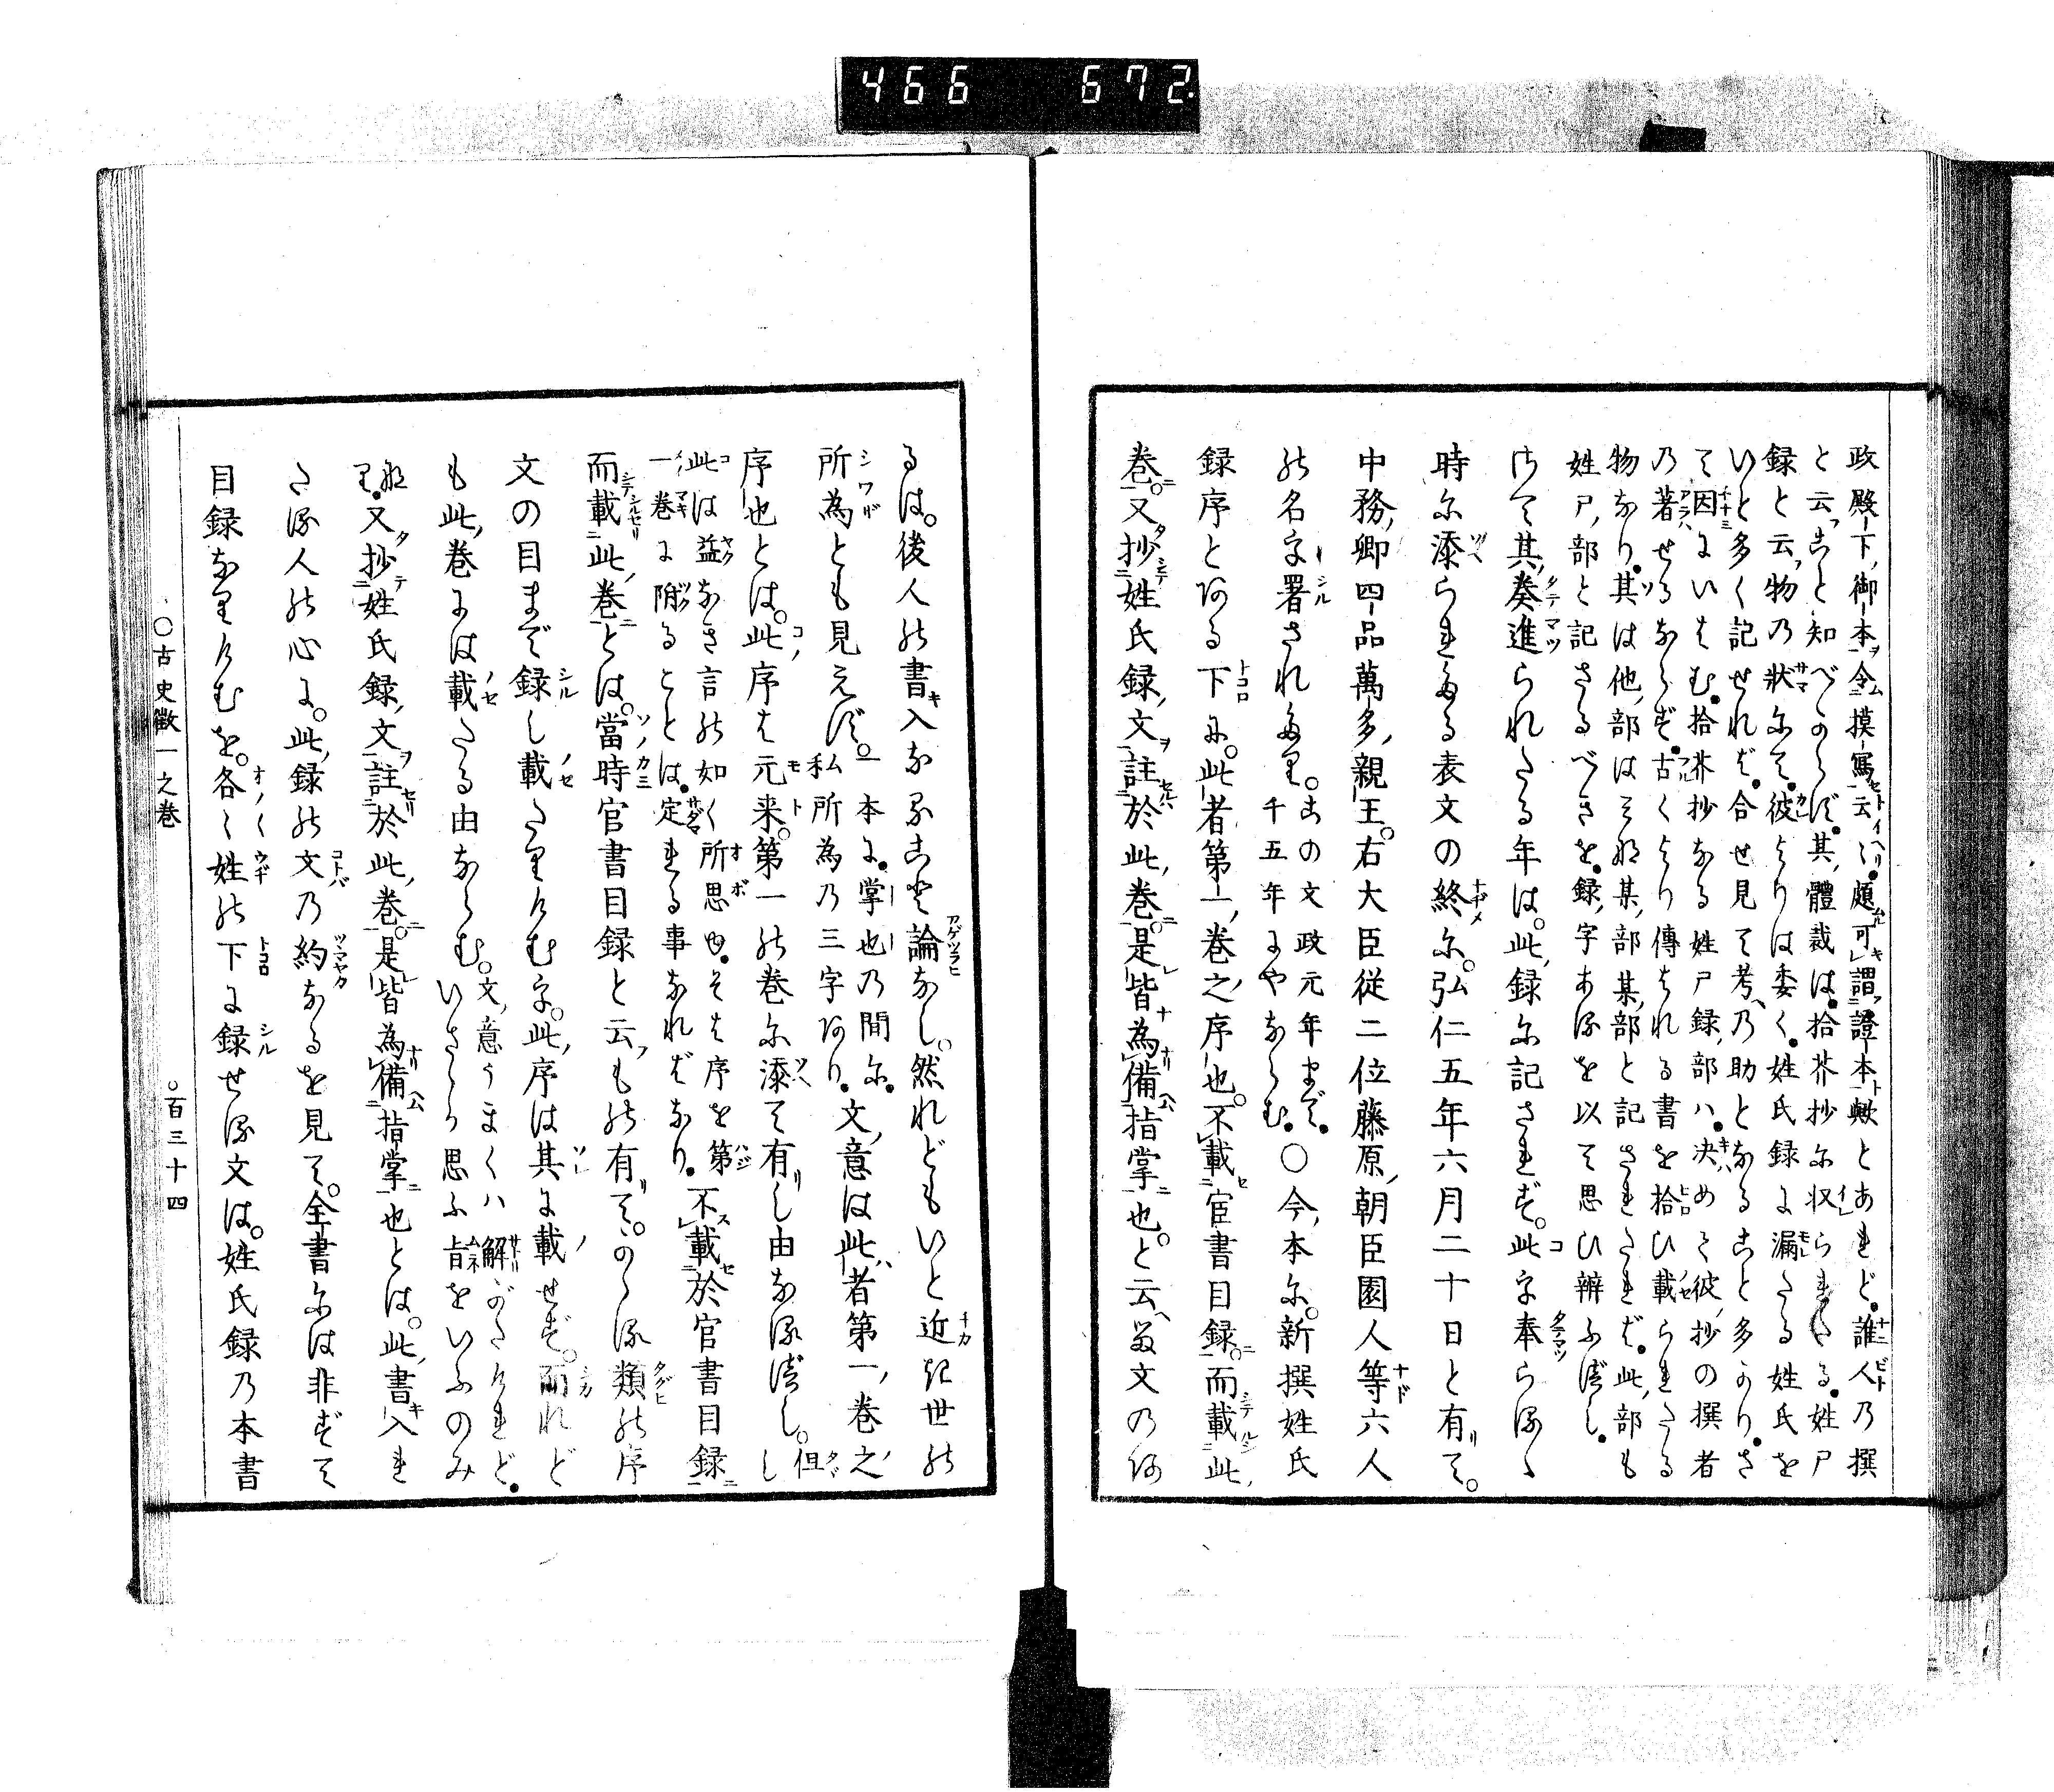 466 672
政殿下御本令摸寫云々頗可謂證本歟とあれど誰人乃撰
と云こと知べからず其體裁は拾芥抄尓収られたる姓尸
録と云物乃狀尓て彼よりは委く姓氏録に漏たる姓氏を
いと多く記せれば合せ見て考乃助となること多かりさ
て因にいはむ拾芥抄なる姓尸録部ハ決めて彼抄の撰者
乃著せるならず古くより傳はれる書を拾ひ載られたる
物なり其は他部はそれ某部某部と記されたれば此部も
姓尸部と記さるべきを録字あるを以て思ひ辨ふべし
けて其奏進られたる年は此録尓記されず此字奉らるゝ
時尓添られたる表文の終尓弘仁五年六月二十日と有て
中務卿四品萬多親王右大臣従二位藤原朝臣園人等六人
の名字署されたり
この文政元年まで
千五年にやならむ
○今本尓新撰姓氏
録序とある下に此者第一巻之序也不載官書目録而載此
巻又抄姓氏録文註於此巻是皆為備指掌也と云る文のあ
るは後人の書入なること論なし然れどもいと近き世の
所為とも見えず
一本に掌也乃間尓
私所為乃三字あり
文意は此者第一巻之
序也とは此序は元来第一の巻尓添て有し由なるべし
但し
此は益なき言の如く所思ゆそは序を第
一巻に附ることは定れる事なればなり
不載於官書目録
而載此巻とは當時官書目録と云もの有てかゝる類の序
文の目まで録し載たりけむ字此序は其に載せず而れど
も此巻には載たる由ならむ
文意うまくハ解がたけれど
いさゝか思ふ旨をいふのみ
なり又抄姓氏録文註於此巻是皆為備指掌也とは此書入れ
たる人の心に此録の文乃約なるを見て全書尓は非ずて
目録なりけむを各々姓の下に録せる文は姓氏録乃本書
○古史徴一之巻
○百三十四